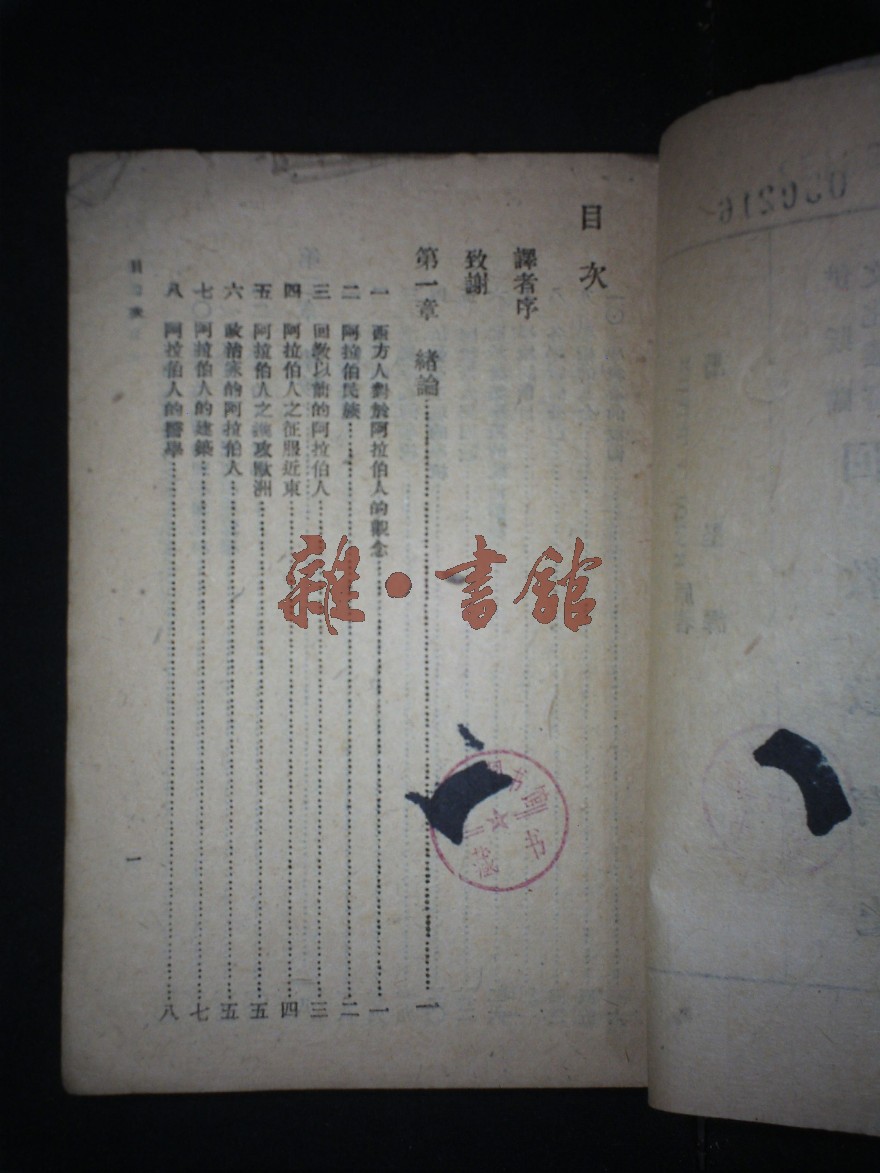 目次
譯者序
致謝
第一章 緒論……一
一 西方人對於阿拉伯人的觀念……一
二 阿拉伯民族……二
三 回教以前的阿拉伯人……三
四 阿拉伯人之征服近東……四
五 阿拉伯人之進攻歐洲……五
六 政治家的阿拉伯人……五
七 阿拉伯人的建築……七
八 阿拉伯人的醫學……八
目次
一
雜·書館
图书
藏书
030216